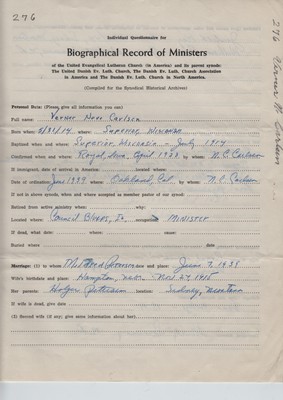 276
276 Verner N. Carlsen
Individual Questionnaire for
Biographical Record of Ministers
of the United Evangelical Lutheran Church (in America) and its parent synods:
The United Danish Ev. Luth. Church, The Danish Ev. Luth. Church Association
in America and The Danish Ev. Luth. Church in North America.
(Compiled for the Synodical Historical Archives)
Personal Data: (Please give all information you can)
Full name: Verner Carlsen
Date born: 5/31/14 where: Superior, Wisconsin
Baptized when and where: Superior, Wisconsin - July 1914
Confirmed when and where: Royal, Iowa, April 1928 by whom: N. C. Carlsen
If immigrant, date of arrival in America: located where:
Date of ordination: June 1939 where: Oakland, Cal. by whom: N. C. Carlsen
If not in above synods, when and where accepted as member pastor of our synod:
Retired from active ministry when: why:
Located where: Council Bluffs, Ia. occupation: MINISTER
If dead, what date: where: cause:
Buried where date
Marriage: (1) to whom: Mildred date and place: June 7, 1939
Wife's birthdate and place: Hampton, Nebr. - Nov. 27, 1915
Her parents: Holger location: Sidney, Montana
If wife is dead, give date
(2) Second wife (if any; give same information about her)